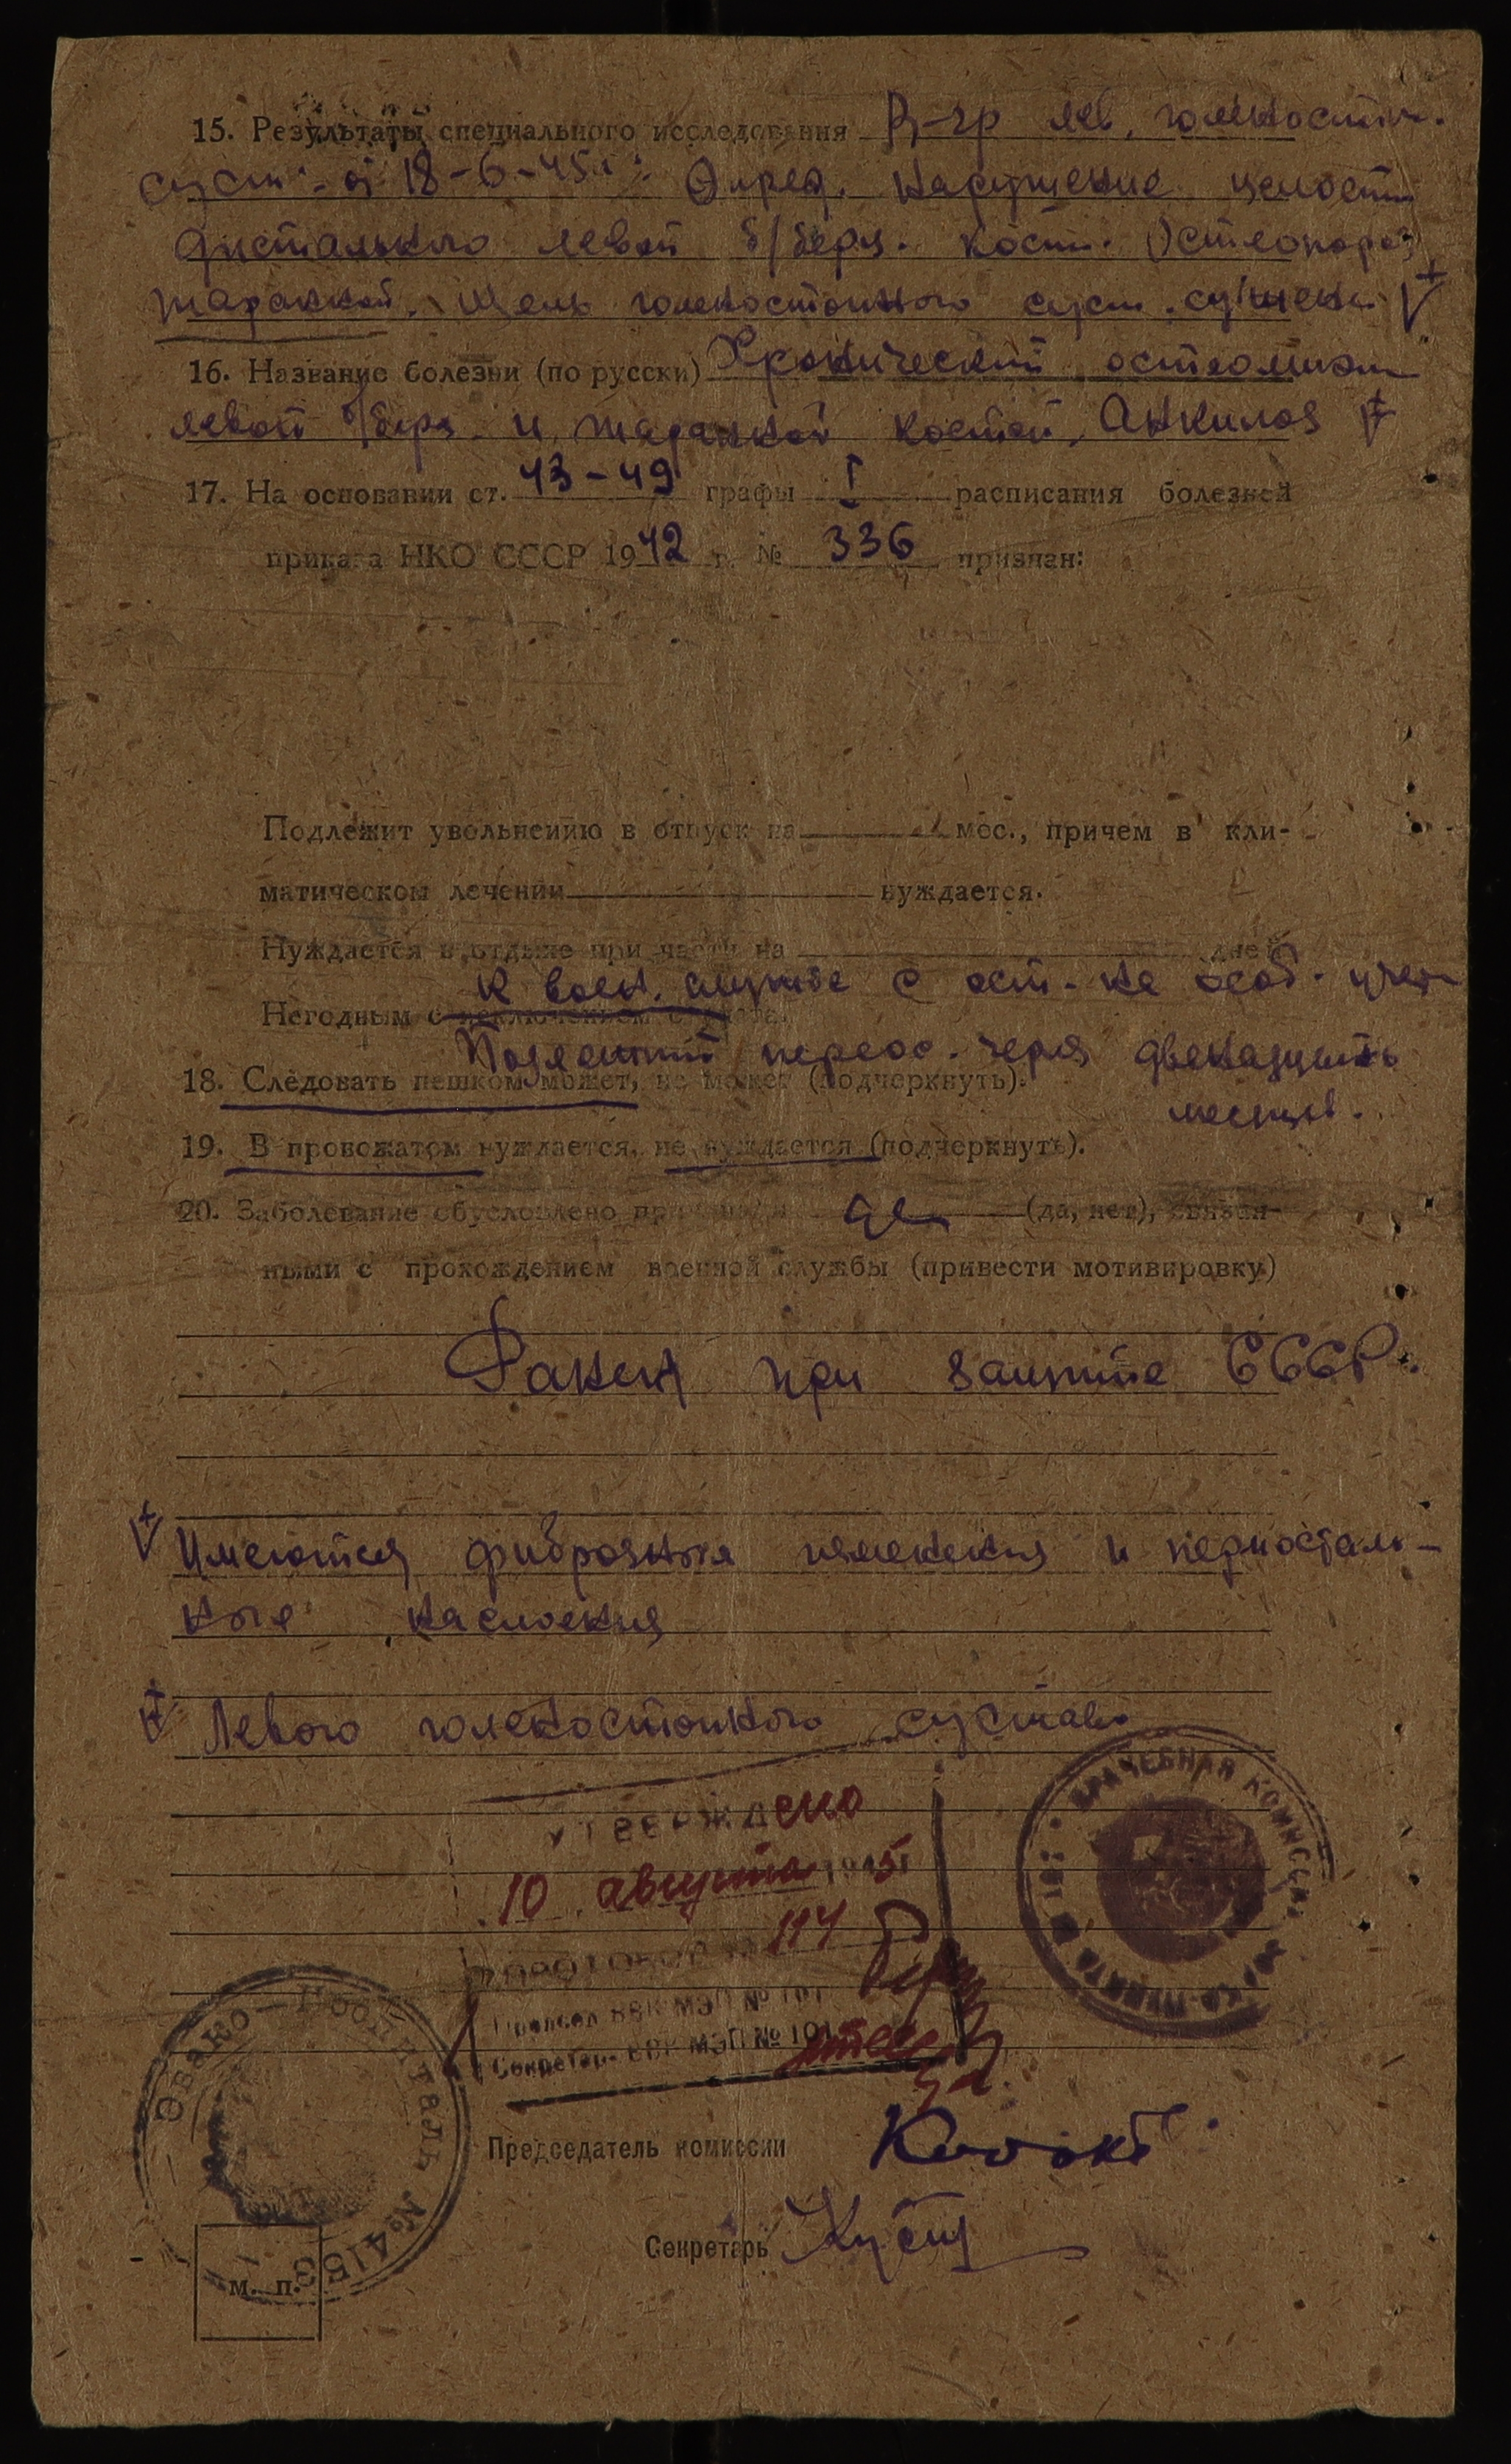 15. Результаты специального исследования R-гр лев. голеностоп.
суст. от 18-6-45 г: Опред. нарушение целости
дистального левой б/берц. кост. Остеопороз
таранной. Щель голеностопного суст. сужена V+
16. Название болезни (по русски) Хронический остеомиэл
левой б/берц. и таранной костей, Анкилоз
17. На основании ст. 43-49 графы I расписания болезней
приказа НКО СССР 1942 г. № 336 признан:
Подлежит увольнению в отпуск на мес., причем в кли-
матическом лечении нуждается.
Нуждается в отдыхе при части на дней
к воен. службе с ост. на особ. учет
Негодным с исключением с учета.
Подлежит переос. через двенадцать
18. Следовать пешком может, не может (подчеркнуть).
месяцев.
19. В провожатом нуждается, не нуждается (подчеркнуть).
20. Заболевание обусловлено причинами да (да, нет), связан-
ными с прохождением военной службы (привести мотивировку)
Ранен при защите СССР.
V+ Имеются фиброзные изменения и периосталь-
ные наслоения
Левого голеностопного сустава
УТВЕРЖДено
10 августа 1945 г
Протокол № 114
Председ. ВВК МЭП № 101
Секретарь ВВК МЭП № 101
ВРАЧЕБНАЯ КОМИССИЯ
Эвако-Госпиталь №4153
Председатель комиссии
Секретарь
м. п.